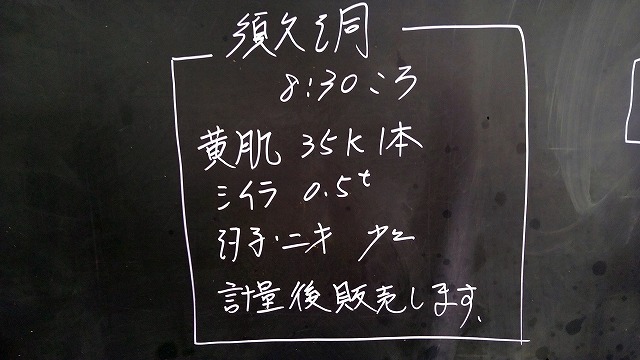 須久洞
8:30ころ
黄肌 35K 1本
シイラ 0.5t
汐子・二才 少々
計量後販売します、